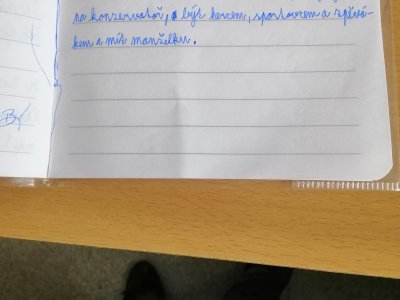 na konzervatoř, a být hercem, sportovcem a zpěvá-
kem a mít manželku.